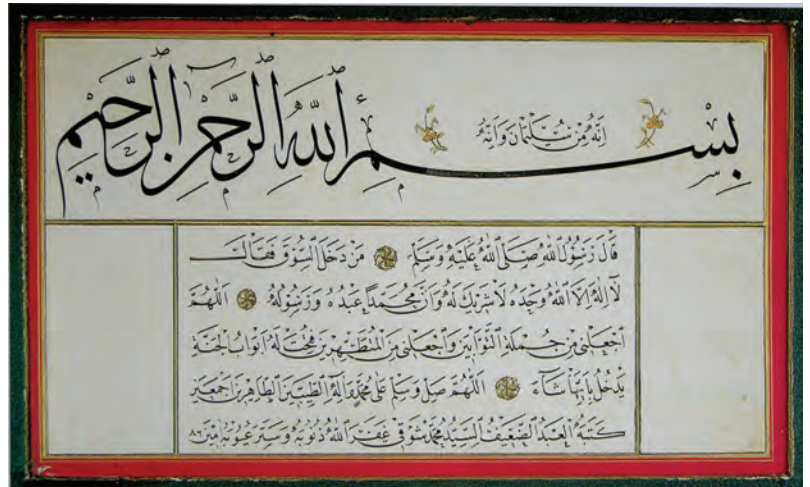 اِنَّهُ مِنْ سُلَيْمَانَ وَاِنَّهُ
بِسْمِ اللهِ الرَّحْمٰنِ الرَّحِيمِ
قَالَ رَسُولُ اللهِ صَلَّى اللهُ عَلَيْهِ وَسَلَّمَ مَنْ دَخَلَ السُّوقَ فَقَالَ
لَا اِلٰهَ اِلَّا اللهُ وَحْدَهُ لَا شَرِيكَ لَهُ وَاَنَّ مُحَمَّدًا عَبْدُهُ وَرَسُولُهُ اَللّٰهُمَّ
اجْعَلْنِي مِنْ جُمْلَةِ التَّوَّابِينَ وَاجْعَلْنِي مِنَ الْمُتَطَهِّرِينَ فُتِحَتْ لَهُ اَبْوَابُ الْجَنَّةِ
يَدْخُلُ بِاَيِّهَا شَاءَ اَللّٰهُمَّ صَلِّ وَسَلِّمْ عَلَى مُحَمَّدٍ وَاٰلِهِ الطَّيِّبِينَ الطَّاهِرِينَ اَجْمَعِينَ
كَتَبَهُ الْعَبْدُ الضَّعِيفُ السَّيِّدُ مُحَمَّد شَوْقِي غَفَرَ اللهُ ذُنُوبَهُ وَسَتَرَ عُيُوبَهُ اٰمِينَ ٨٦